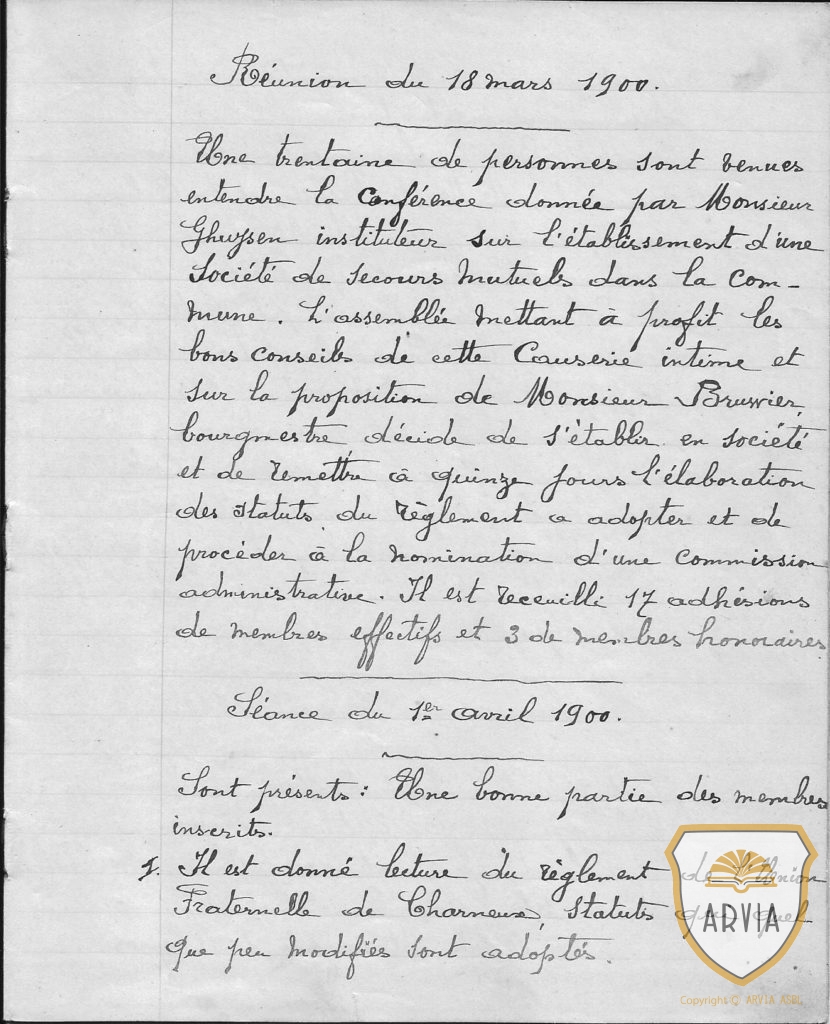 Réunion du 18 mars 1900.
Une trentaine de personnes sont venues
entendre la Conférence donnée par Monsieur
Gheysen instituteur sur l'établissement d'une
Société de secours Mutuels dans la Com-
mune. L'assemblée mettant à profit les
bons conseils de cette Causerie intime et
sur la proposition de Monsieur Bruwier,
bourgmestre décide de s'établir en société
et de remettre à quinze jours l'élaboration
des statuts du règlement a adopter et de
procéder à la nomination d'une commission
administrative. Il est receuilli 17 adhésions
de membres effectifs et 3 de membres honoraires
Séance du 1er avril 1900.
Sont présents : Une bonne partie des membres
inscrits.
1. Il est donné lecture du règlement de l'Union
Fraternelle de Charneux, statuts qui quel
que peu modifiés sont adoptés.
ARVIA
Copyright © ARVIA ASBL